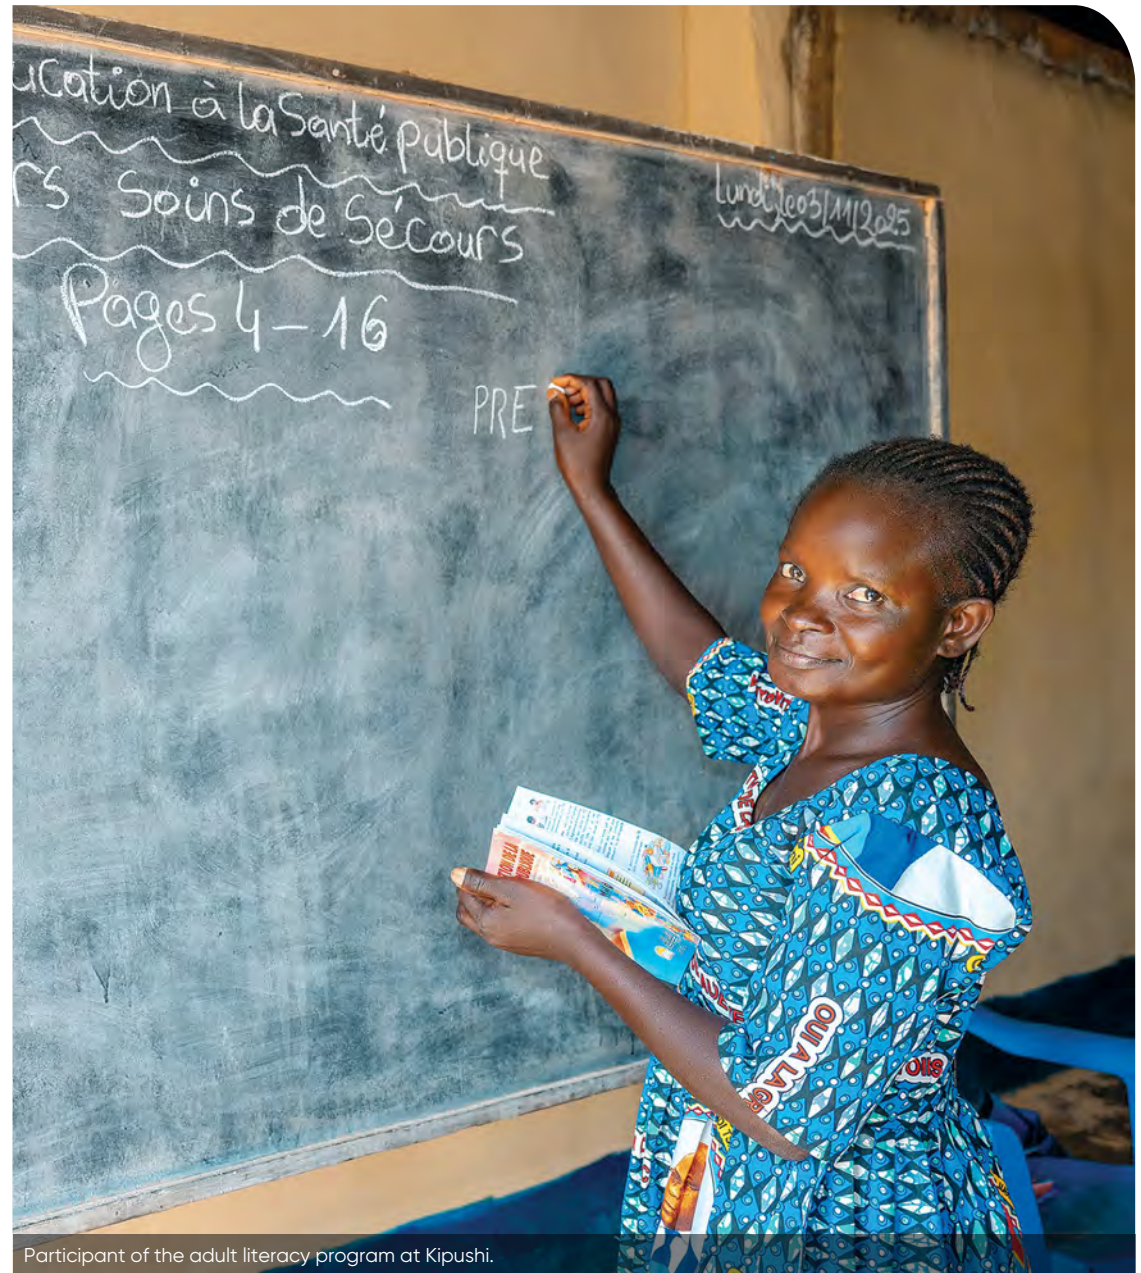 ucation à la Santé publique
rs Soins de Sécours
Lundi le 03/11/2025
Pages 4-16
PRE
OUI A LA
Participant of the adult literacy program at Kipushi.